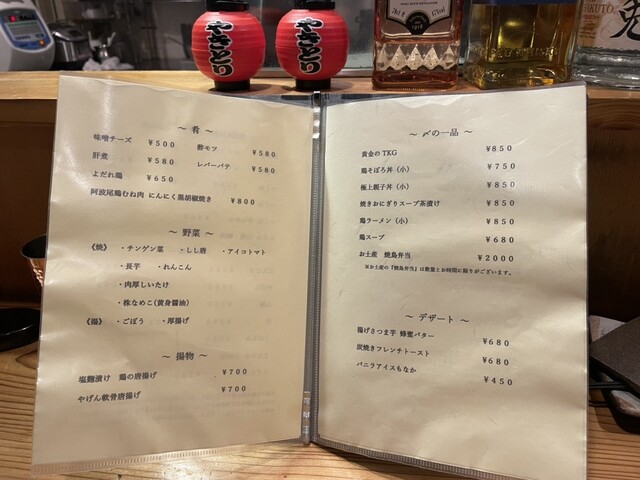 やきとり
やきとり
～ 肴 ～
味噌チーズ ¥500 酢モツ ¥580
肝煮 ¥580 レバーパテ ¥580
よだれ鶏 ¥650
阿波尾鶏むね肉 にんにく黒胡椒焼き ¥800
～ 野菜 ～
《焼》 ・チンゲン菜 ・しし唐 ・アイコトマト
・長芋 ・れんこん
・肉厚しいたけ
・株なめこ(黄身醤油)
《揚》 ・ごぼう ・厚揚げ
～ 揚物 ～
塩麹漬け 鶏の唐揚げ ¥700
やげん軟骨唐揚げ ¥700
～ 〆の一品 ～
黄金のTKG ¥850
鶏そぼろ丼（小） ¥750
極上親子丼（小） ¥850
焼きおにぎりスープ茶漬け ¥850
鶏ラーメン（小） ¥850
鶏スープ ¥680
お土産 焼鳥弁当 ¥2000
※お土産の『焼鳥弁当』は数量とお時間に限りがございます。
～ デザート ～
揚げさつま芋 蜂蜜バター ¥680
炭焼きフレンチトースト ¥680
バニラアイスもなか ¥450